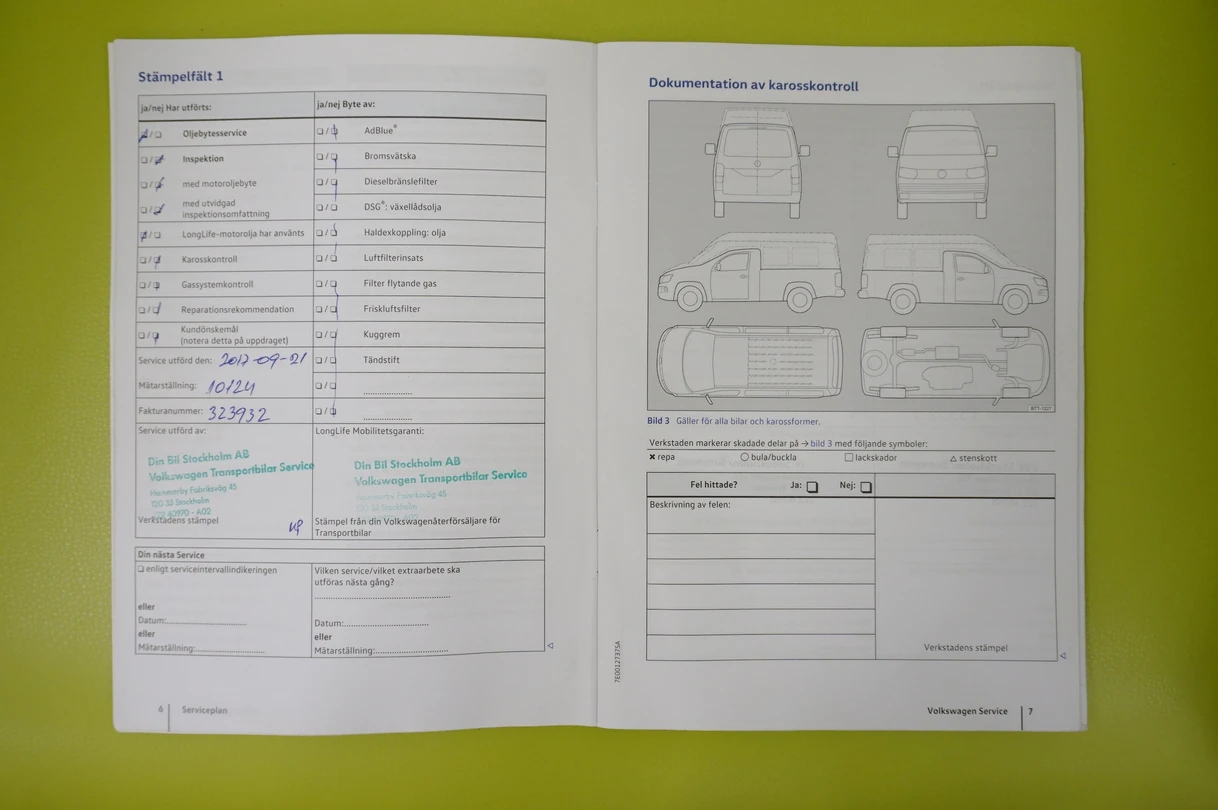 Stämpelfält 1
ja/nej Har utförts:
ja/nej Byte av:
Oljebytesservice
AdBlue®
Inspektion
Bromsvätska
med motoroljebyte
Dieselbränslefilter
med utvidgad
inspektionsomfattning
DSG®: växellådsolja
LongLife-motorolja har använts
Haldexkoppling: olja
Karosskontroll
Luftfilterinsats
Gassystemkontroll
Filter flytande gas
Reparationsrekommendation
Friskluftsfilter
Kundönskemål
(notera detta på uppdraget)
Kuggrem
Service utförd den: 2017-09-21
Tändstift
Mätarställning: 10124
Fakturanummer: 323932
Service utförd av:
Din Bil Stockholm AB
Volkswagen Transportbilar Service
Hammarby Fabriksväg 45
120 33 Stockholm
40970 - A02
Verkstadens stämpel
LongLife Mobilitetsgaranti:
Din Bil Stockholm AB
Volkswagen Transportbilar Service
Hammarby Fabriksväg 45
120 33 Stockholm
Stämpel från din Volkswagenåterförsäljare för
Transportbilar
Din nästa Service
enligt serviceintervallindikeringen
eller
Datum:
eller
Mätarställning:
Vilken service/vilket extraarbete ska
utföras nästa gång?
Datum:
eller
Mätarställning:
6 Serviceplan
Dokumentation av karosskontroll
BTT-1027
Bild 3 Gäller för alla bilar och karossformer.
Verkstaden markerar skadade delar på → bild 3 med följande symboler:
× repa ○ bula/buckla □ lackskador △ stenskott
Fel hittade? Ja: Nej:
Beskrivning av felen:
Verkstadens stämpel
7E0012737SA
Volkswagen Service 7